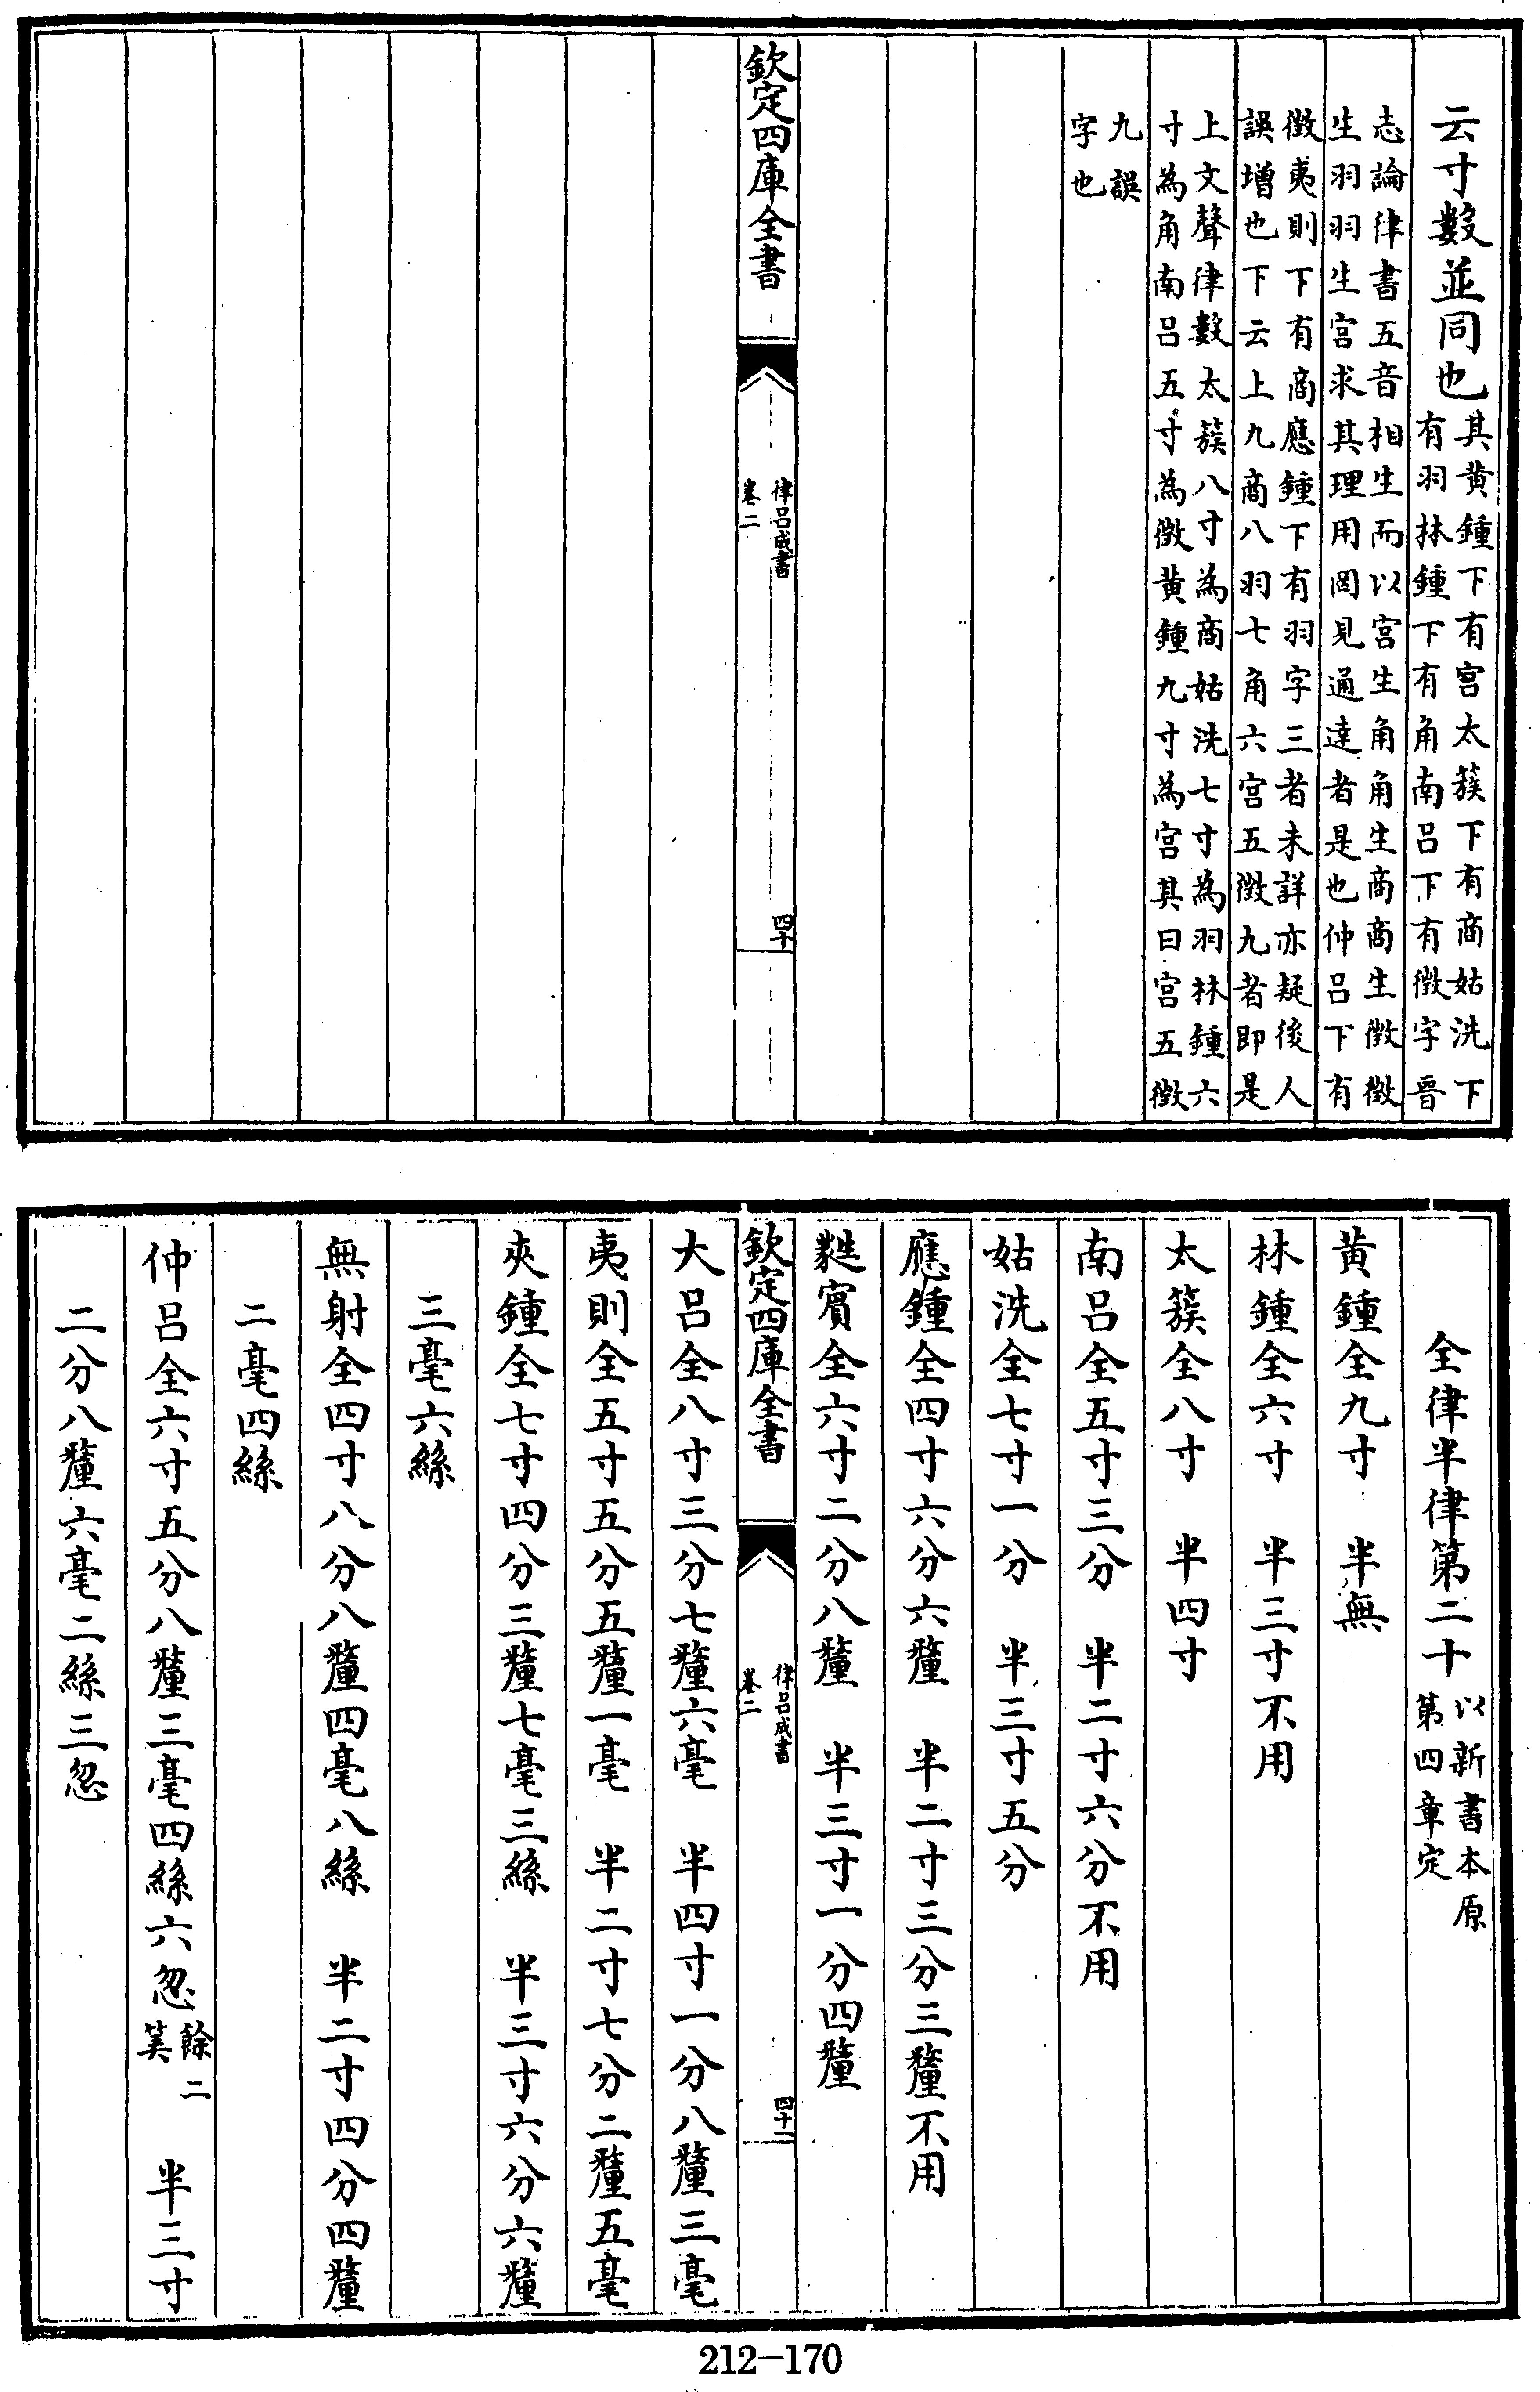 云寸數並同也其黃鍾下有宮太簇下有商姑洗下
有羽林鍾下有角南呂下有徵字晉
志論律書五音相生而以宮生角角生商商生徵徵
生羽羽生宮求其理用罔見通達者是也仲呂下有
徵夷則下有商應鍾下有羽字三者未詳亦疑後人
誤增也下云上九商八羽七角六宮五徵九者即是
上文聲律數太簇八寸為商姑洗七寸為羽林鍾六
寸為角南呂五寸為徵黃鍾九寸為宮其曰宮五徵
九誤
字也
欽定四庫全書
律呂成書
卷二
四十
全律半律第二十以新書本原
第四章定
黃鍾全九寸 半無
林鍾全六寸 半三寸不用
太簇全八寸 半四寸
南呂全五寸三分 半二寸六分不用
姑洗全七寸一分 半三寸五分
應鍾全四寸六分六釐 半二寸三分三釐不用
蕤賓全六寸二分八釐 半三寸一分四釐
欽定四庫全書
律呂成書
卷二
四十一
大呂全八寸三分七釐六毫 半四寸一分八釐三毫
夷則全五寸五分五釐一毫 半二寸七分二釐五毫
夾鍾全七寸四分三釐七毫三絲 半三寸六分六釐
三毫六絲
無射全四寸八分八釐四毫八絲 半二寸四分四釐
二毫四絲
仲呂全六寸五分八釐三毫四絲六忽餘二
筭 半三寸
二分八釐六毫二絲三忽
212-170